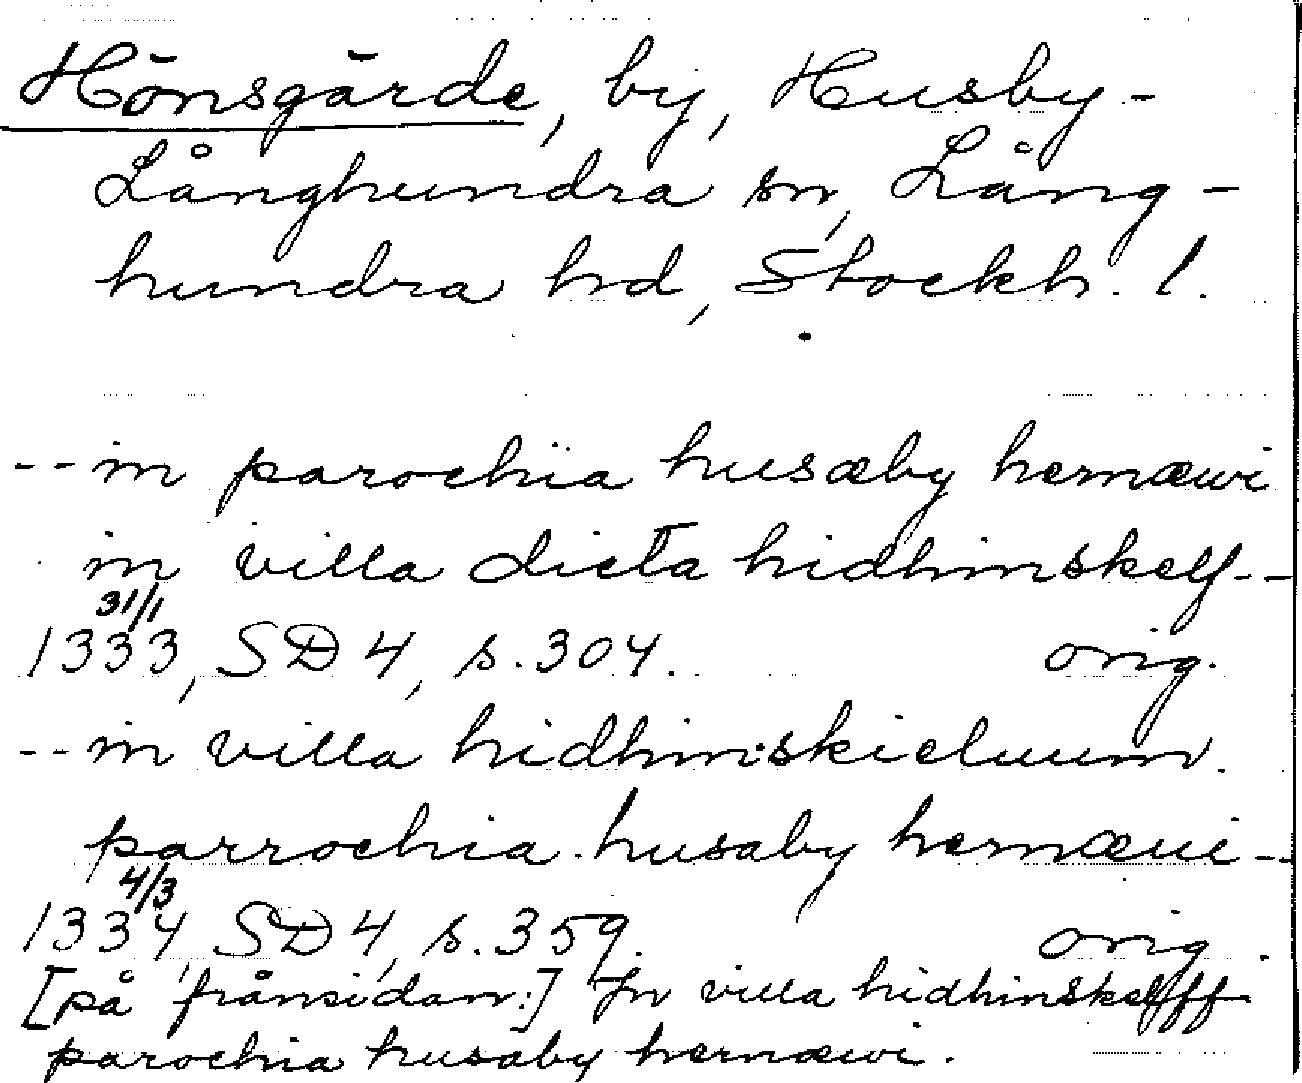 Hönsgärde, by, Husby-
Långhundra sn, Lång-
hundra hd, Stockh. l.
--in parochia husæby hernæwi
in villa dicta hidhinskelf--
31/1
1333, SD 4, s. 304. orig.
--in villa hidhinskieluum
parrochia husaby hernæui--
4/3
1334, SD 4, s. 359. orig.
[på frånsidan:] In villa hidhinskelfff
parochia husaby hernæwi.